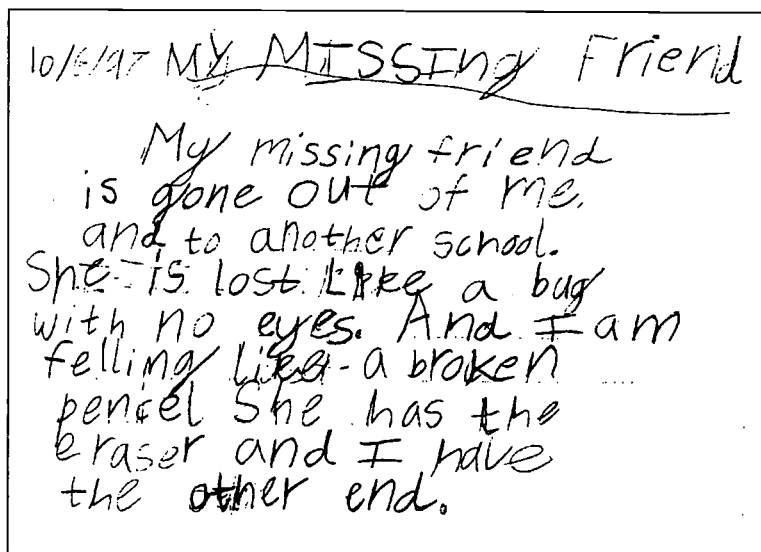 10/6/97 My MISSIng Friend
My missing friend
is gone out of me.
and to another school.
She is lost Like a bug
with no eyes. And I am
felling like a broken
pencel She has the
eraser and I have
the other end.